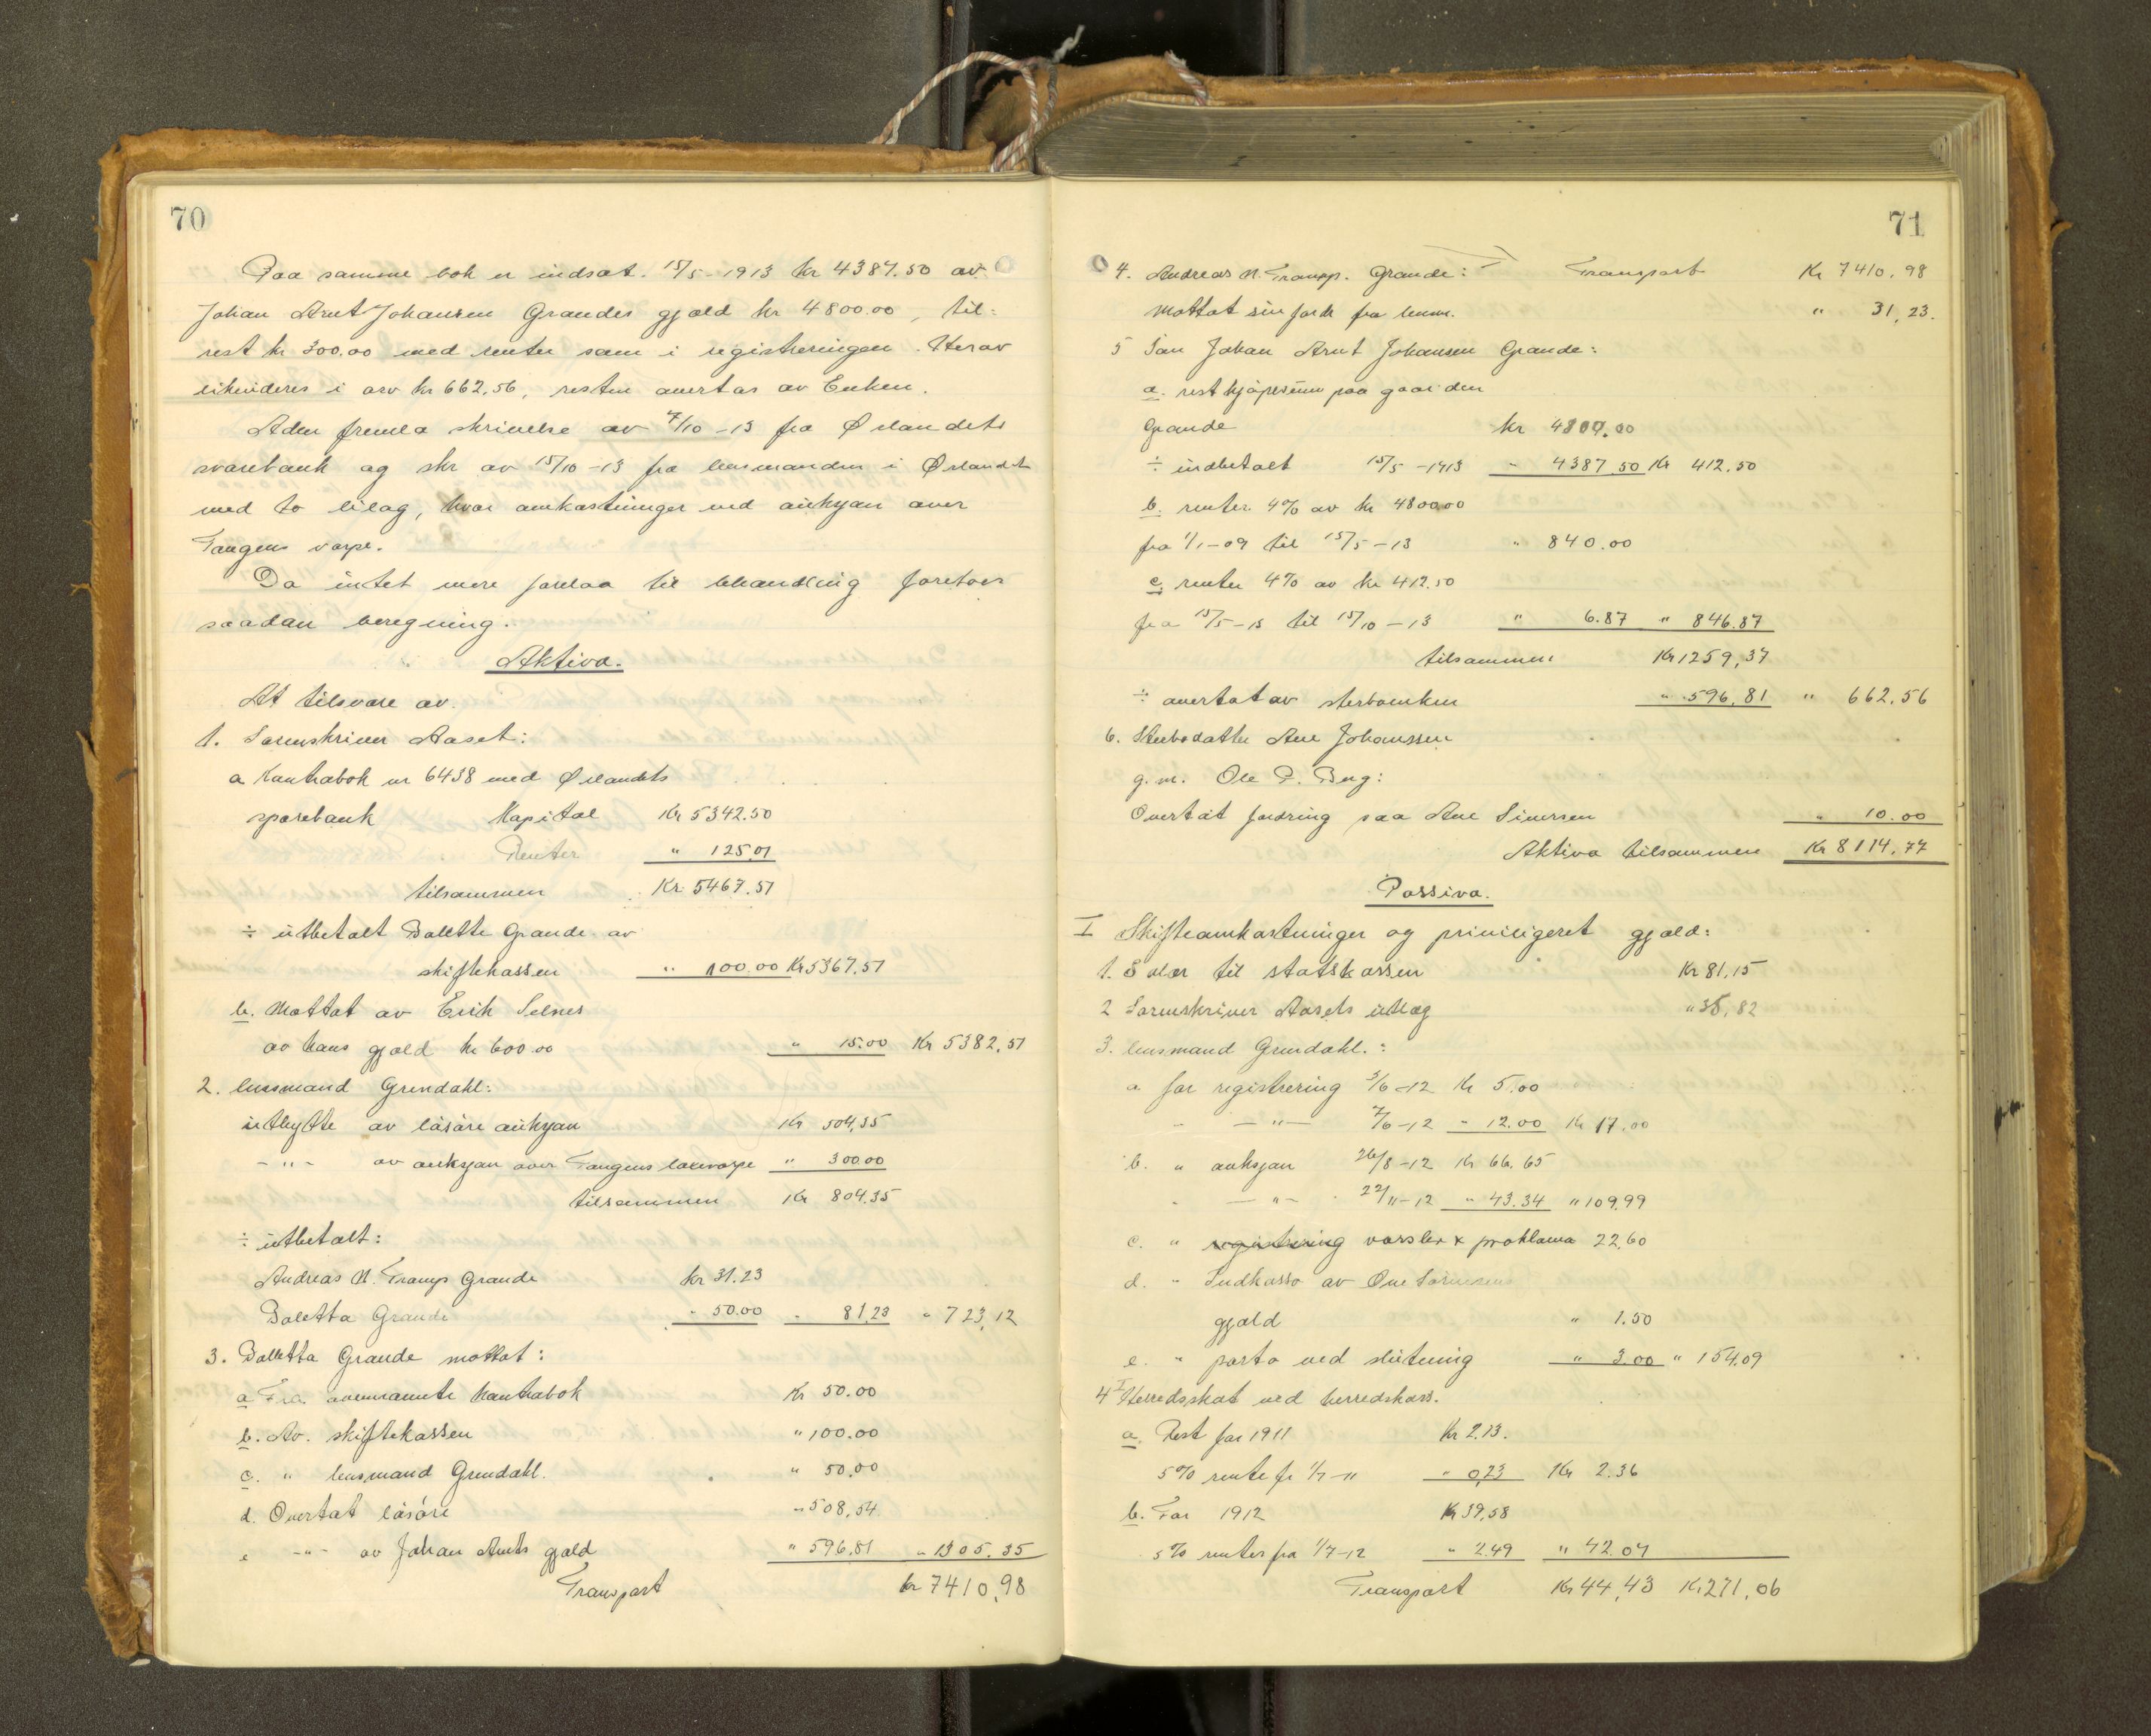 70
Paa samme bok er indsat 15/5-1913 kr 4387.50 av
Johan Arnt Johansen Grandes gjæld kr 4800.00, til-
rest kr 300.00 med renter som i registreringen. Herav
likvideres i arv kr 662,56, resten overtas av Enken.
Aden fremla skrivelse av 7/10-13 fra Ørlandets
sparebank og skr av 15/10-13 fra lensmanden i Ørlandet
med to bilag, hvor omkostninger ved auksjon over
Tangens varpe.
Da intet mere forelaa til behandling foretoes
saadan beregning.
Aktiva.
At tilsvare av.
1. Sorenskriver Aaset:
a Kontrabok nr 6438 med Ørlandets
sparebank Kapital Kr 5342.50
Renter " 125,01
tilsammen Kr. 5467.51
÷ utbetalt Bolette Grande av
skiftekassen " 100.00 Kr 5367.51
b. Mottat av Erik Selnes
av hans gjæld kr 600.00 " 15.00 Kr 5382,51
2. lensmand Grendahl:
utbytte av løsøre auksjon Kr 504,35
- " - av auksjon over Tangens laxevarpe " 300.00
tilsammen Kr 804.35
÷ utbetalt:
Andreas N. Tramp. Grande kr 31.23
Boletta Grande " 50.00 " 81,23 " 723,12
3. Bolletta Grande mottat:
a Fra ovennævnte kontrabok Kr 50.00
b. Av. skiftekassen " 100.00
c. " lensmand Grendahl. " 50,00
d. Overtat løsøre " 508,54
e - " - av Johan Arnts gjæld " 596.81 " 1305.35
Transport kr 7410,98
71
4. Andreas N. Tramp. Grande: Transport Kr 7410.98
Mottat sin fordr fra lensm. " 31,23.
5 Søn Johan Arnt Johansen Grande:
a. rest kjøpesum paa gaarden
Grande kr 4800.00
÷ indbetalt 15/5-1913 " 4387.50 Kr 412.50
b. renter 4% av kr 4800.00
fra 1/1-09 til 15/5-13 " 840.00
c. renter 4% av kr 412.50
fra 15/5-13 til 15/10-13 " 6.87 " 846.87
tilsammen Kr 1259,37
÷ overtat av sterboenken " 596,81 " 662.56
6. Sterbodatter Ane Johanssen
g.m. Ole P. Berg:
Overtat fordring paa Ane Siversen " 10.00
Aktiva tilsammen Kr 8114.77
Passiva.
I Skifteomkostninger og priviligeret gjæld:
1. Salær til statskassen Kr 81,15
2 Sorenskriver Aasets utlæg " 35,82
3. lensmand Grendahl.:
a for registrering 3/6-12 Kr 5.00
- - " - 7/6-12 " 12.00 Kr 17.00
b. " auksjon 26/8-12 Kr 66.65
- - " - 22/11-12 " 43.34 " 109,99
c. " registrering varsler x proklama 22,60
d. " Indkasso av Ane Sørensens
gjæld " 1.50
e. " porto ved slutning " 3.00 " 154,09
4 Herredsskat ved herredskass.
a. Rest for 1911 Kr 2.13.
5% rente fr 1/7-11 " 0,23 Kr 2.36
b. For 1912 Kr 39,58
5% renter fra 1/7-12 " 2.49 " 42.07
Transport Kr 44,43 Kr 271,06